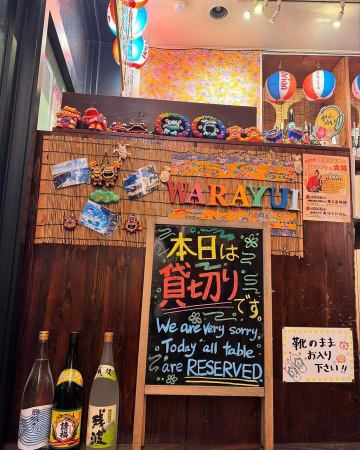 WARAYUI
本日は
貸切り
です。
We are very sorry,
Today all table
are RESERVED
靴のまま
お入り
下さい!!
残波